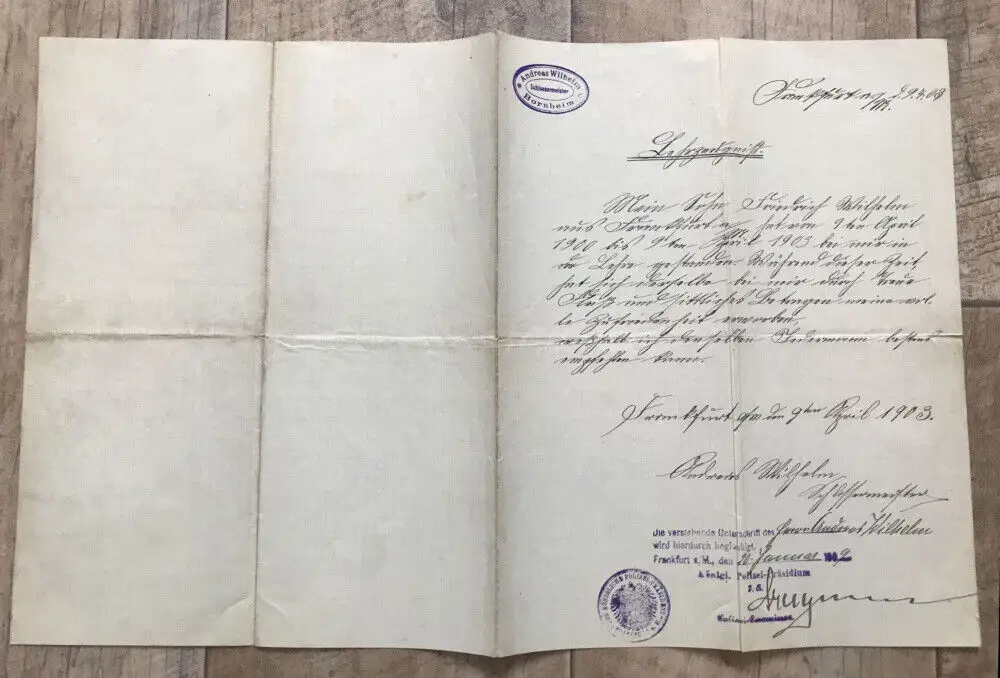 Andreas Wilhelm
Schlossermeister
Bornheim
Frankfurt a/M.
Lehrzeugniß.
Mein Sohn Friedrich Wilhelm
aus Frankfurt a/M. hat vom 9ten April
1900 bis 9ten April 1903 bei mir in
der Lehre gestanden. Während dieser Zeit
hat sich derselbe bei mir durch Treue
Fleiß und sittliches Betragen meine vol-
le Zufriedenheit erworben,
weßhalb ich denselben Jedermann bestens
empfehlen kann.
Frankfurt a/M. den 9ten April 1903.
Andreas Wilhelm
Schlossermeister
Die vorstehende Unterschrift des Herrn Andreas Wilhelm
wird hierdurch beglaubigt.
Frankfurt a/M., den Januar 190
Königl. Polizei-Präsidium